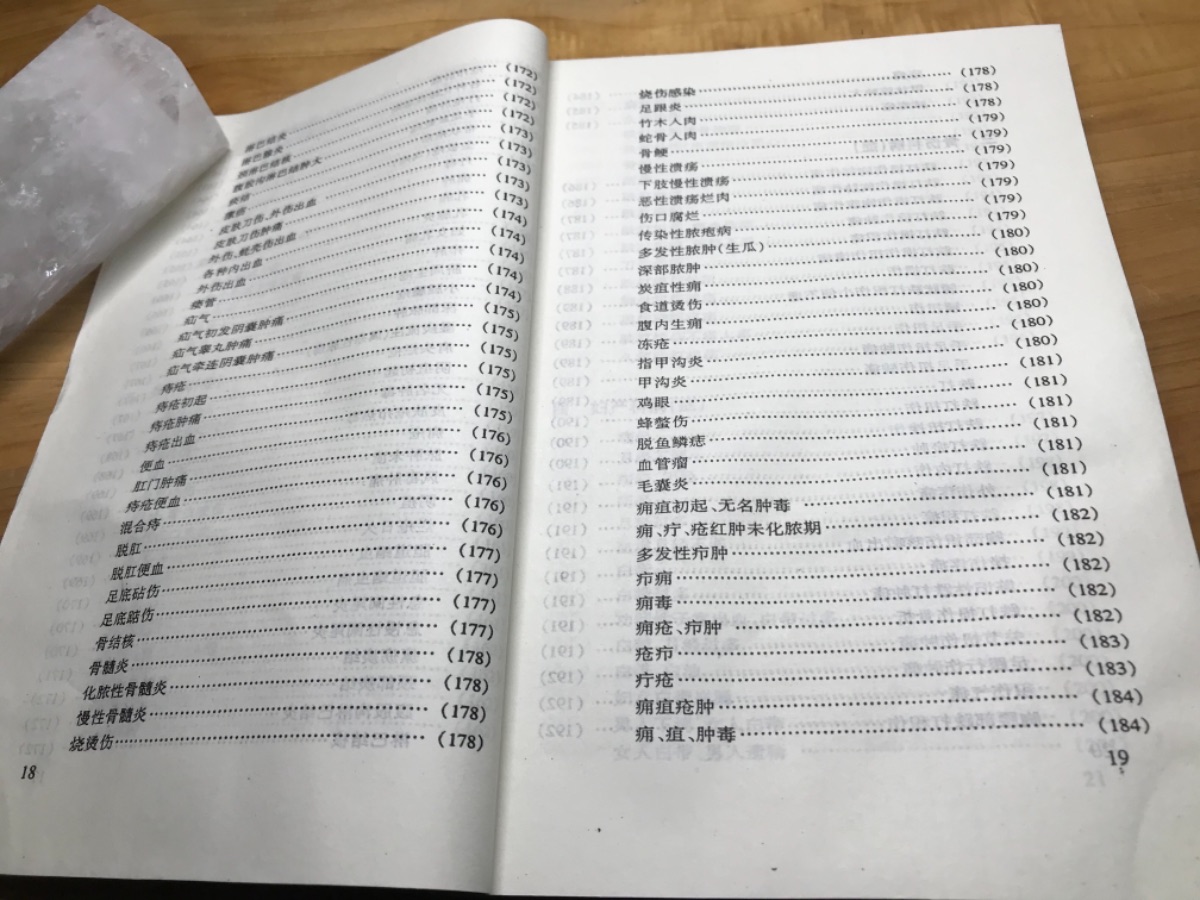 淋巴结炎……(172)
淋巴腺炎……(172)
颈淋巴结核……(172)
腹股沟淋巴结肿大……(172)
痰结……(173)
……(173)
皮肤刀伤、外伤出血……(173)
皮肤刀伤肿痛……(173)
外伤、蚝壳伤出血……(173)
各种内出血……(174)
外伤出血……(174)
瘘管……(174)
疝气……(174)
疝气初发阴囊肿痛……(174)
疝气睾丸肿痛……(175)
疝气牵连阴囊肿痛……(175)
痔疮……(175)
痔疮初起……(175)
痔疮肿痛……(175)
痔疮出血……(175)
便血……(176)
肛门肿痛……(176)
痔疮便血……(176)
混合痔……(176)
脱肛……(176)
脱肛便血……(177)
足底砧伤……(177)
足底踮伤……(177)
骨结核……(177)
骨髓炎……(178)
化脓性骨髓炎……(178)
慢性骨髓炎……(178)
烧烫伤……(178)
18
烧伤感染……(178)
足跟炎……(178)
竹木入肉……(178)
蛇骨入肉……(179)
骨鲠……(179)
慢性溃疡……(179)
下肢慢性溃疡……(179)
恶性溃疡烂肉……(179)
伤口腐烂……(179)
传染性脓疱病……(179)
多发性脓肿(生瓜)……(180)
深部脓肿……(180)
炭疽性痈……(180)
食道烫伤……(180)
腹内生痈……(180)
冻疮……(180)
指甲沟炎……(180)
甲沟炎……(181)
鸡眼……(181)
蜂螫伤……(181)
脱鱼鳞痣……(181)
血管瘤……(181)
毛囊炎……(181)
痈疽初起、无名肿毒……(181)
痈、疔、疮红肿未化脓期……(182)
多发性疖肿……(182)
疖痈……(182)
痈毒……(182)
痈疮、疖肿……(182)
疮疖……(183)
疔疮……(183)
痈疽疮肿……(184)
痈、疽、肿毒……(184)
19